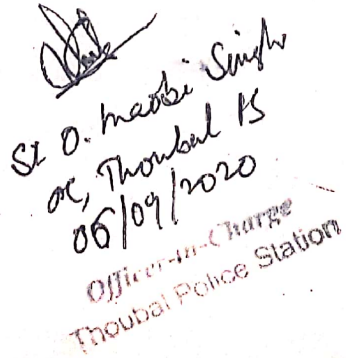 SI O. Maobi Singh
OC, Thoubal PS
06/09/2020
Officer-in-Charge
Thoubal Police Station